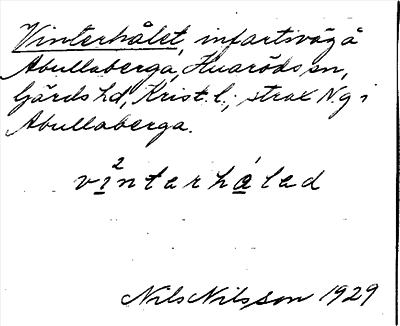 Vinterhålet, infartsväg å
Abullaberga, Huaröds sn,
Gärds hd, Krist. l.; strax N. g i
Abullaberga.
vi²ntarhålad
Nils Nilsson 1929